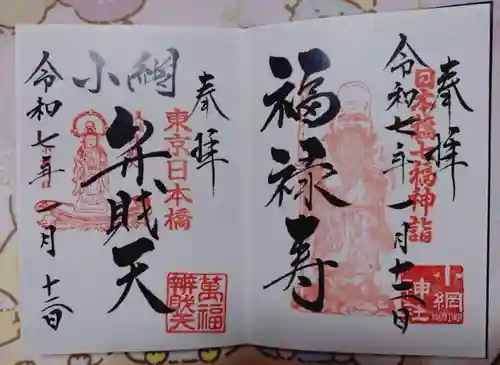 奉拝
日本橋七福神詣
福禄寿
令和七年一月十二日
小網
神社
奉拝
東京日本橋
小網
弁財天
萬福
辨財天
令和七年一月十二日